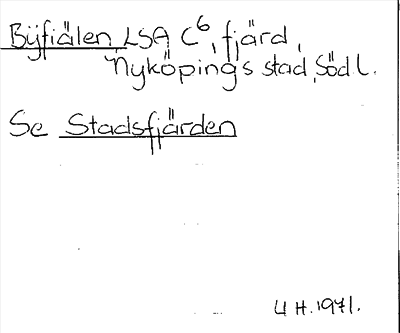 Bÿfiälen LSA C⁶, fjärd,
Nyköpings stad, Söd l.
Se Stadsfjärden
U H. 1971.